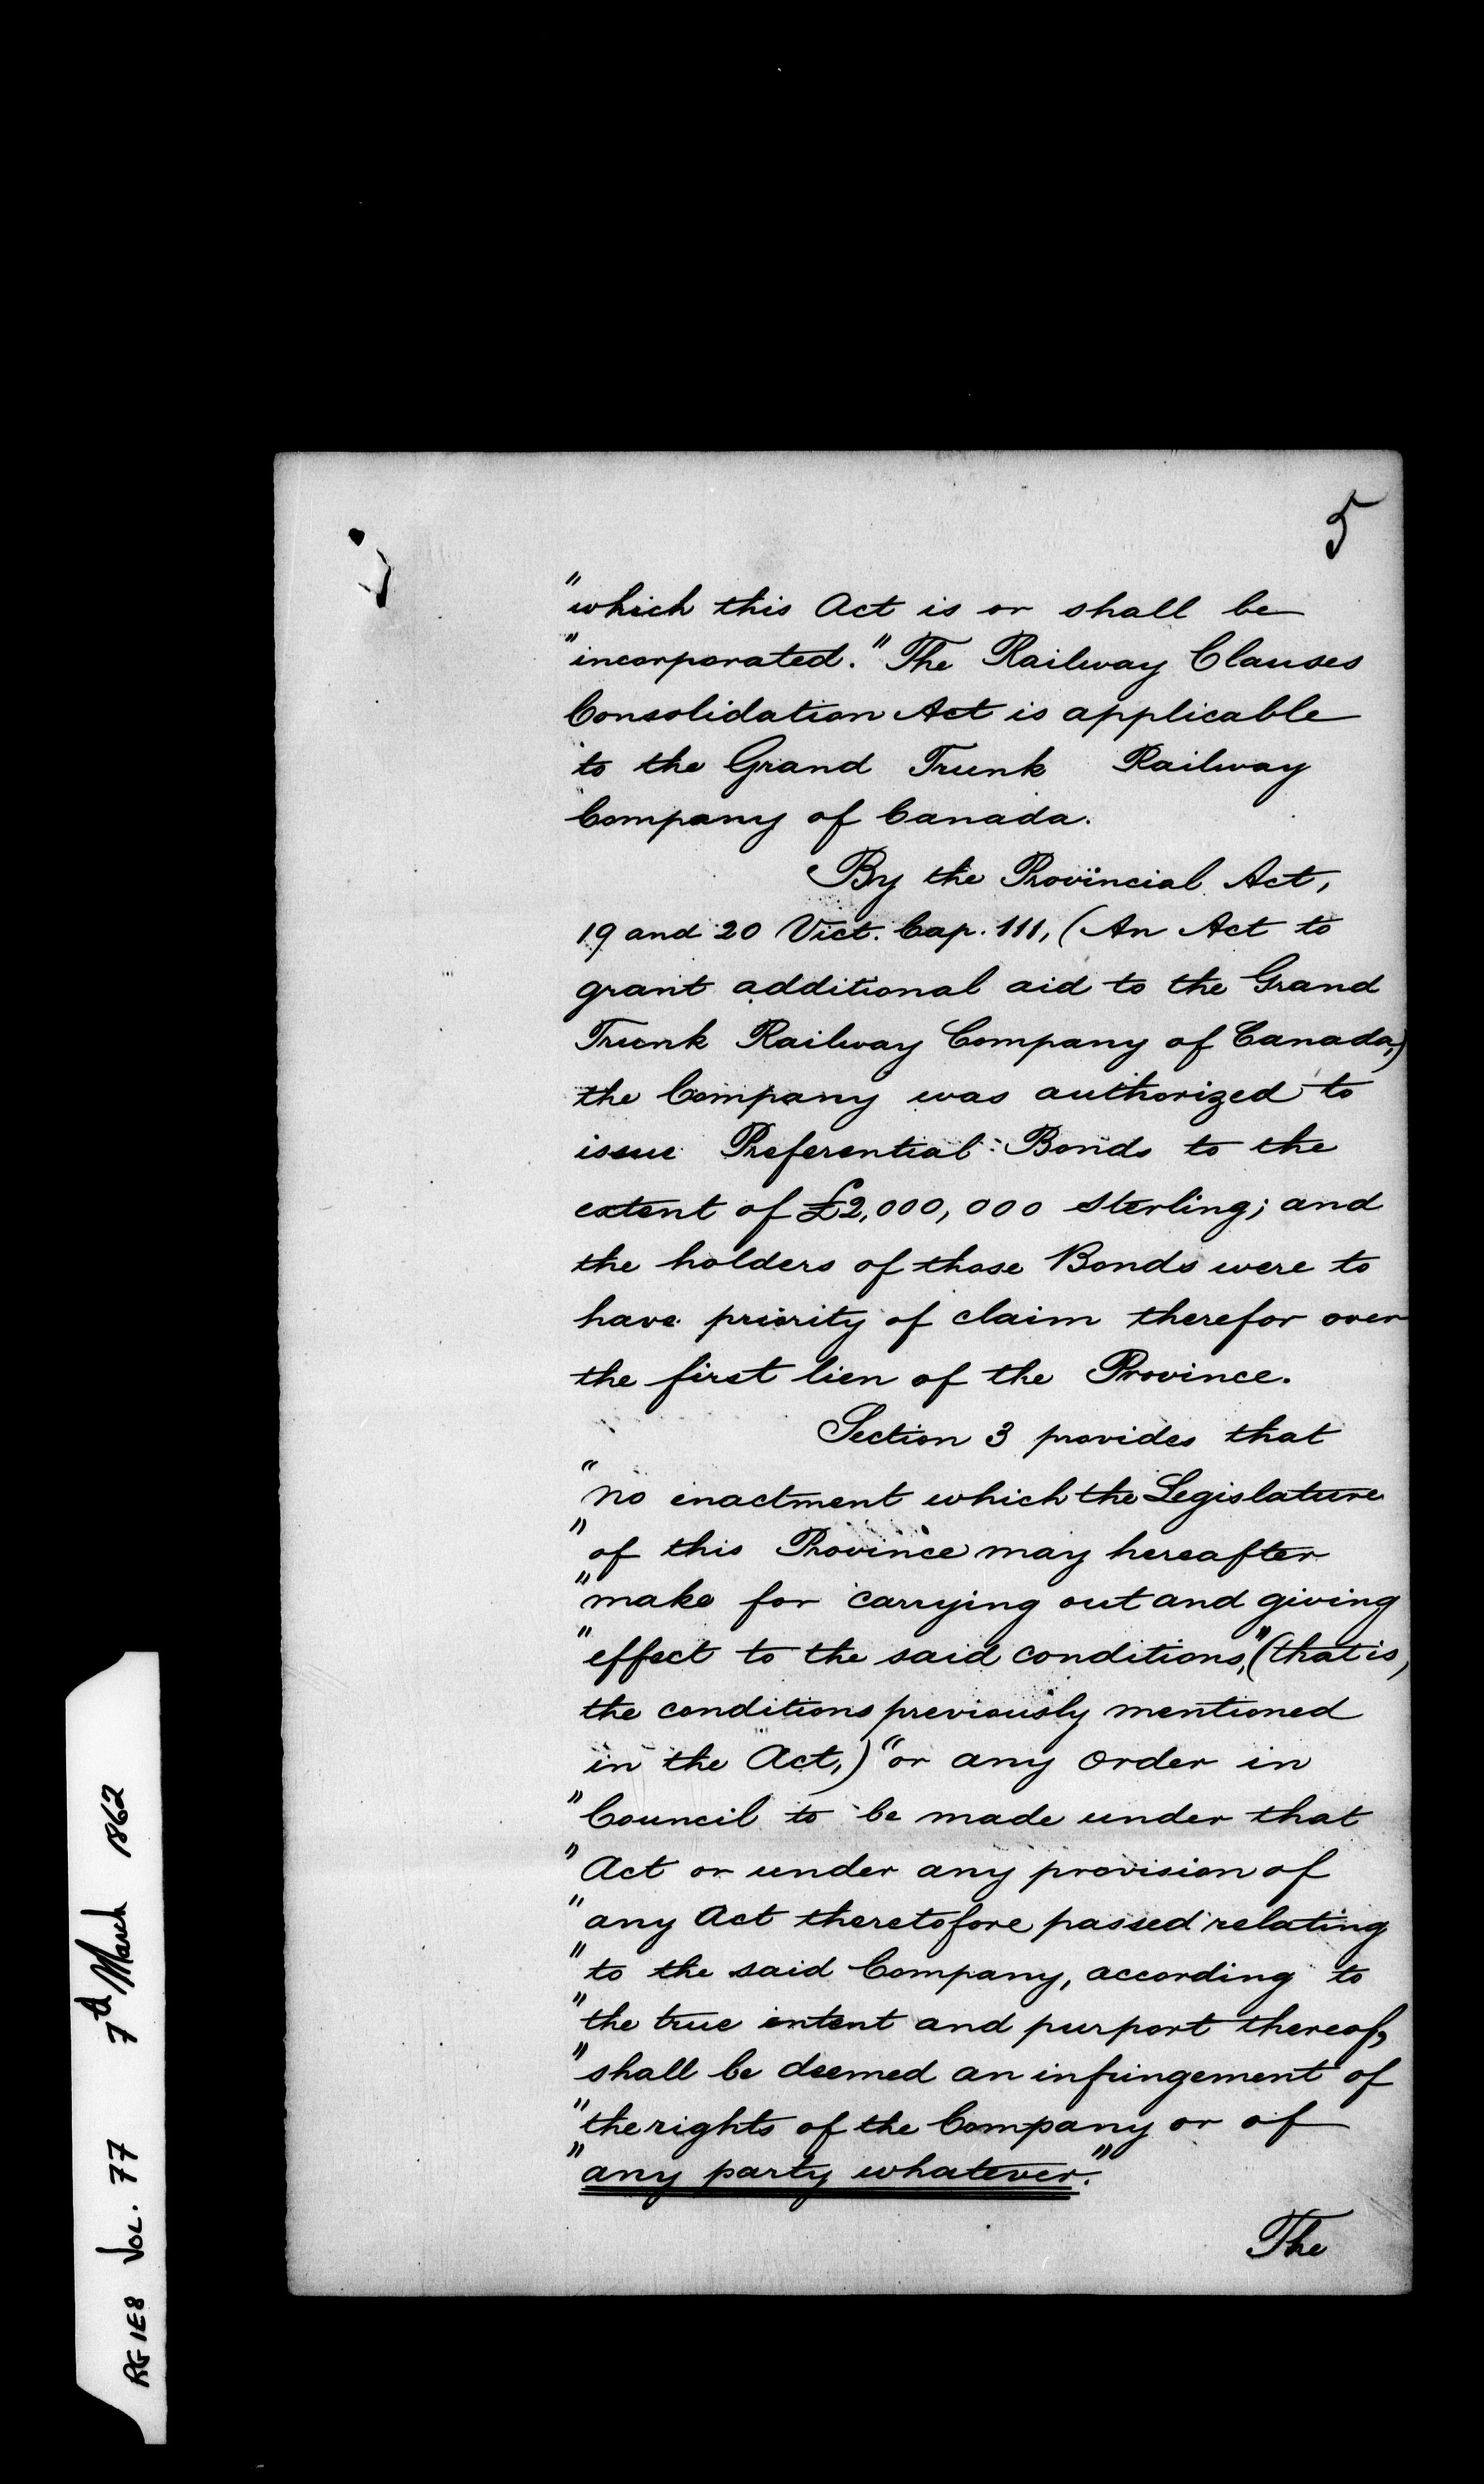 5
"which this Act is or shall be
"incorporated." The Railway Clauses
Consolidation Act is applicable
to the Grand Trunk Railway
Company of Canada.
By the Provincial Act,
19 and 20 Vict. Cap. 111, (An Act to
grant additional aid to the Grand
Trunk Railway Company of Canada,)
the Company was authorized to
issue Preferential Bonds to the
extent of £2,000,000 sterling; and
the holders of those Bonds were to
have priority of claim therefor over
the first lien of the Province.
Section 3 provides that
"no enactment which the Legislature
"of this Province may hereafter
"make for carrying out and giving
"effect to the said conditions," (that is,
the conditions previously mentioned
in the Act,) "or any order in
"Council to be made under that
"Act or under any provision of
"any Act theretofore passed relating
"to the said Company, according to
"the true intent and purport thereof,
"shall be deemed an infringement of
"the rights of the Company or of
"any party whatever."
The
RG 1E8 VOL. 77 7th March 1862